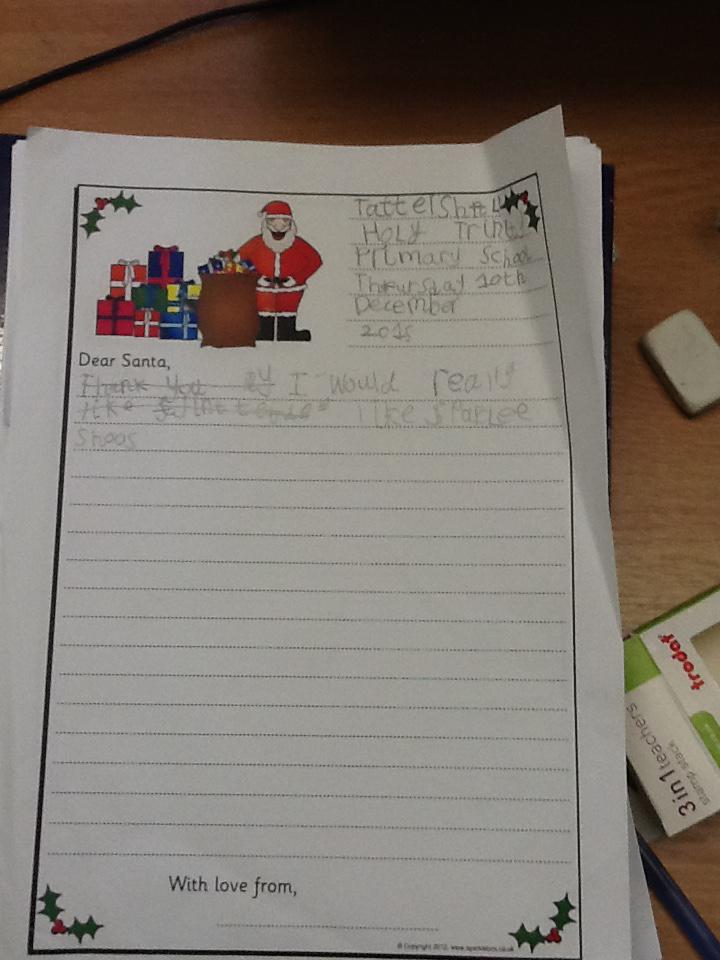 Tattelshall
Holy Trinity
Primary School
Theursday 10th
December
2015
Dear Santa,
Thank you I would really
like like sparlee
shoos
With love from,
© Copyright 2012, www.sparklebox.co.uk
trodat
3 in 1 teachers
stamp stack